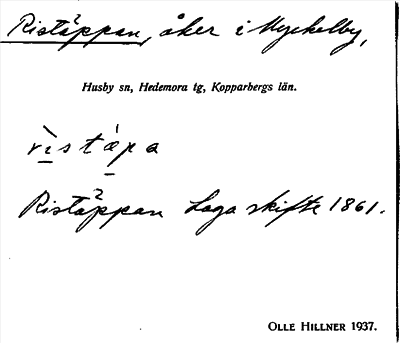 Ristäppan, åker i Myckelby,
Husby sn, Hedemora tg, Kopparbergs län.
rìstä̀pa
Ristäppan Laga skifte 1861.
OLLE HILLNER 1937.